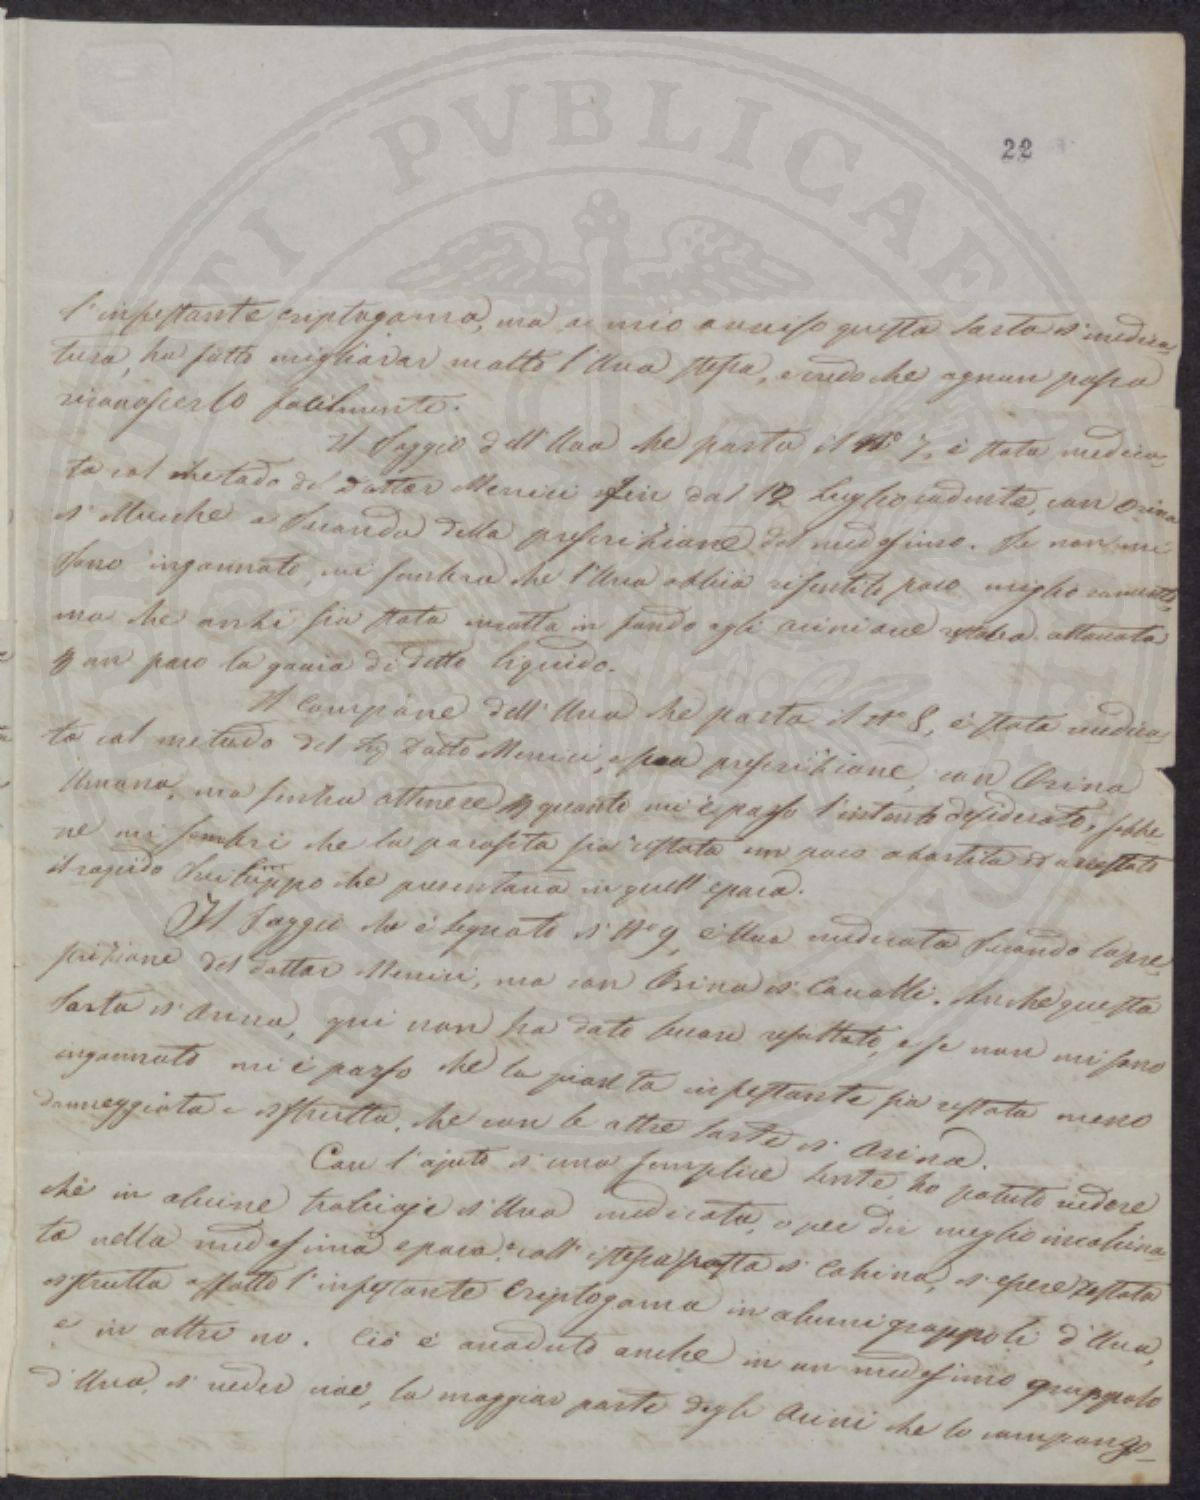 22
l'infestante criptogama, ma a mio avviso questa sorta di medica-
tura, ha fatto migliorar molto l'Uva stessa, e credo che ognun possa
riconoscerlo facilmente.
Il Saggio dell'Uva che porta il N.o 7, è stata medica-
ta col metodo del Dottor Menici fin dal 12 Luglio cadente, con Orina
di Mucche a seconda della prescrizione del medesimo. Se non mi
sono ingannato, mi sembra che l'Uva abbia risentito poco miglioramento,
ma che anzi sia stata in fondo agli acini ove restava attaccata
un poco la goccia di detto liquido.
Il Campione dell'Uva che porta il N.o 8, è stata medica-
ta col metodo del Sig Dotto Menici, e sua prescrizione, con Orina
Umana, ma senza ottenere quanto mi è parso l'intento desiderato, sebbe-
ne mi sembri che la parasita sia restata un poco abortita ed arrestato
il rapido sviluppo che presentava in quell'epoca.
Il Saggio che è segnato di N.o 9, è Uva medicata secondo la pre-
scrizione del dottor Menici, ma con Orina di Cavalli. Anche questa
sorta di Orina, qui non ha dato buon resultato, e se non mi sono
ingannato mi è parso che la pianta infestante sia restata meno
danneggiata e distrutta, che con le altre sorte di Orina.
Con l'ajuto di una semplice lente, ho potuto vedere
che in alcune tralciaje di Uva medicata, o per dir meglio incalcina-
ta nella medesima epoca e coll'istessa sorta di Calcina, di essere restata
distrutta affatto l'infestante Criptogama in alcuni grappoli d'Uva,
e in altri no. Ciò è accaduto anche in un medesimo grappolo
d'Uva, di veder cioè, la maggior parte degli Acini che lo compongo-